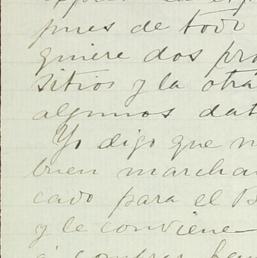 pues de todo
quiere dos pro
sitios y la otra
algunos dat
Yo digo que n
buen marcha
cado para el B
y le conviene